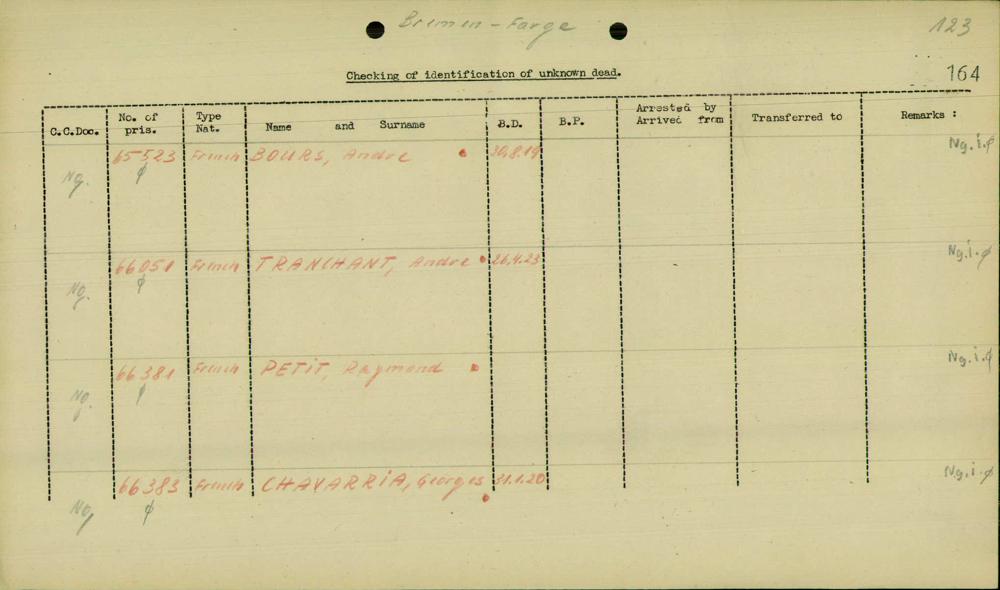 Bremen - Farge
123
164
Checking of identification of unknown dead.
C.C.Doc. No. of pris. Type Nat. Name and Surname B.D. B.P. Arrested by Arrived from Transferred to Remarks :
Ng. 65523 φ French BOURS, Andre 30.8.19 Ng. i. φ
Ng. 66051 φ French TRANCHANT, Andre 26.4.23 Ng. i. φ
Ng. 66381 φ French PETiT, Raymond Ng. i. φ
Ng. 66383 φ French CHAVARRiA, Georges 31.1.20 Ng. i. φ